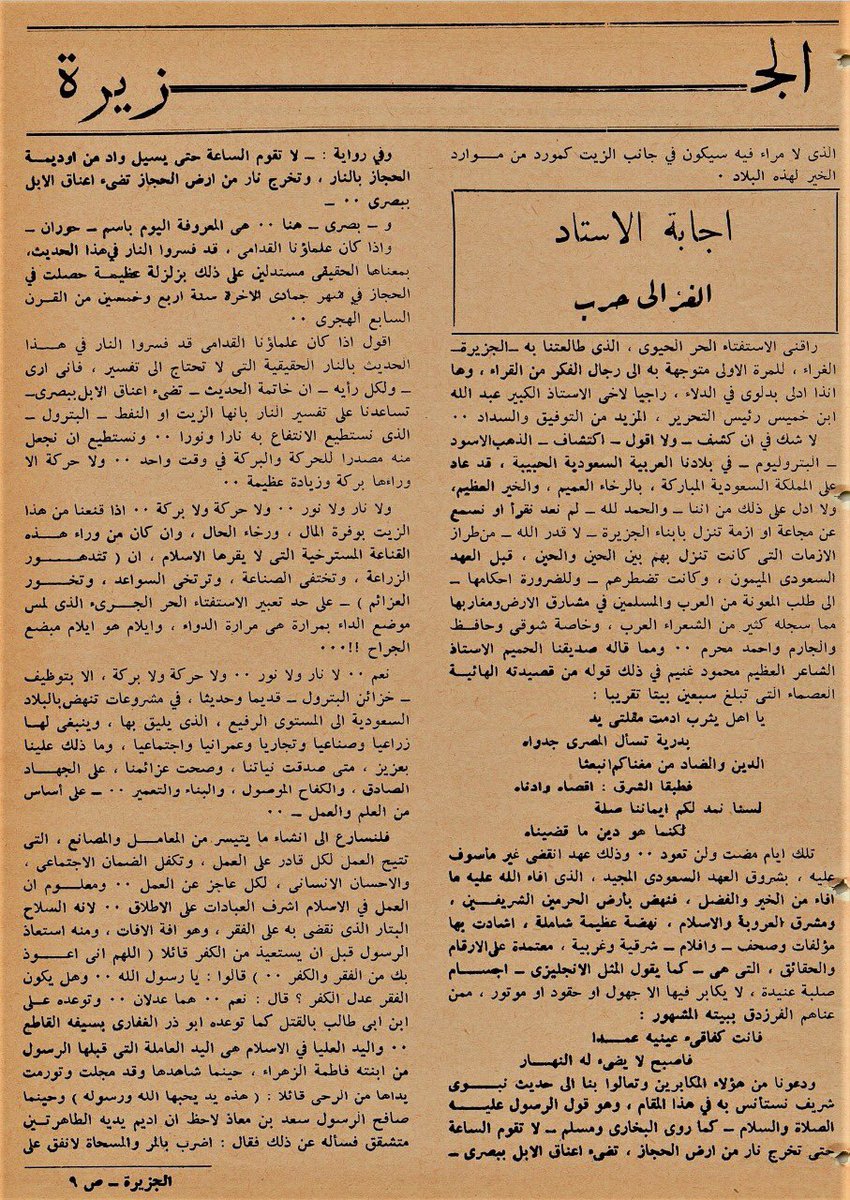 الجزيرة
الذى لا مراء فيه سيكون في جانب الزيت كمورد من موارد
الخير لهذه البلاد ٠
اجابة الاستاد
الغزالى حرب
راقنى الاستفتاء الحر الحيوى ، الذى طالعتنا به ــ الجزيرة ــ
الغراء ، للمرة الاولى متوجهة به الى رجال الفكر من القراء ، وها
انذا ادلى بدلوى في الدلاء ، راجيا لاخى الاستاذ الكبير عبد الله
ابن خميس رئيس التحرير ، المزيد من التوفيق والسداد ٠٠
لا شك في ان كشف ــ ولا اقول ــ اكتشاف ــ الذهب الاسود
ــ البتروليوم ــ في بلادنا العربية السعودية الحبيبة ، قد عاد
على المملكة السعودية المباركة ، بالرخاء العميم ، والخير العظيم،
ولا ادل على ذلك من اننا ــ والحمد لله ــ لم نعد نقرأ او نسمع
عن مجاعة او ازمة تنزل بابناء الجزيرة ــ لا قدر الله ــ من طراز
الازمات التى كانت تنزل بهم بين الحين والحين ، قبل العهد
السعودى الميمون ، وكانت تضطرهم ــ وللضرورة احكامها ــ
الى طلب المعونة من العرب والمسلمين في مشارق الارض ومغاربها
مما سجله كثير من الشعراء العرب ، وخاصة شوقى وحافظ
والجارم واحمد محرم ٠٠ ومما قاله صديقنا الحميم الاستاذ
الشاعر العظيم محمود غنيم في ذلك قوله من قصيدته الهائية
العصماء التى تبلغ سبعين بيتا تقريبا :
يا اهل يثرب ادمت مقلتى يد
بدرية تسأل المصرى جدواه
الدين والضاد من مغناكم انبعثا
فطبقا الشرق : اقصاه وادناه
لسنا نمد لكم ايماننا صلة
لكنما هو دين ما قضيناه
تلك ايام مضت ولن تعود ٠٠ وذلك عهد انقضى غير مأسوف
عليه ، بشروق العهد السعودى المجيد ، الذى افاء الله عليه ما
افاء من الخير والفضل ، فنهض بأرض الحرمين الشريفين ،
ومشرق العروبة والاسلام ، نهضة عظيمة شاملة ، اشادت بها
مؤلفات وصحف ــ وافلام ــ شرقية وغربية ، معتمدة على الارقام
والحقائق ، التى هى ــ كما يقول المثل الانجليزى ــ اجسام
صلبة عنيدة ، لا يكابر فيها الا جهول او حقود او موتور ، ممن
عناهم الفرزدق ببيته المشهور :
فانت كفاقىء عينيه عمدا
فاصبح لا يضىء له النهار
ودعونا من هؤلاء المكابرين وتعالوا بنا الى حديث نبوى
شريف نستأنس به في هذا المقام ، وهو قول الرسول عليه
الصلاة والسلام ــ كما روى البخارى ومسلم ــ لا تقوم الساعة
حتى تخرج نار من ارض الحجاز ، تضىء اعناق الابل ببصرى ــ
وفي رواية : ــ لا تقوم الساعة حتى يسيل واد من اوديمة
الحجاز بالنار ، وتخرج نار من ارض الحجاز تضىء اعناق الابل
ببصرى ٠٠ ــ
و ــ بصرى ــ هنا ٠٠ هى المعروفة اليوم باسم ــ حوران ــ
واذا كان علماؤنا القدامى ، قد فسروا النار في هذا الحديث،
بمعناها الحقيقى مستدلين على ذلك بزلزلة عظيمة حصلت في
الحجاز في شهر جمادى الاخرة سنة اربع وخمسين من القرن
السابع الهجرى ٠٠
اقول اذا كان علماؤنا القدامى قد فسروا النار في هذا
الحديث بالنار الحقيقية التى لا تحتاج الى تفسير ، فانى ارى
ــ ولكل رأيه ــ ان خاتمة الحديث ــ تضىء اعناق الابل ببصرى ــ
تساعدنا على تفسير النار بانها الزيت او النفط ــ البترول ــ
الذى نستطيع الانتفاع به نارا ونورا ٠٠ ونستطيع ان نجعل
منه مصدرا للحركة والبركة في وقت واحد ٠٠ ولا حركة الا
وراءها بركة وزيادة عظيمة ٠٠
ولا نار ولا نور ٠٠ ولا حركة ولا بركة ٠٠ اذا قنعنا من هذا
الزيت بوفرة المال ، ورخاء الحال ، وان كان من وراء هذه
القناعة المسترخية التى لا يقرها الاسلام ، ان ( تتدهور
الزراعة ، وتختفى الصناعة ، وترتخى السواعد ، وتخور
العزائم ) ــ على حد تعبير الاستفتاء الحر الجرىء الذى لمس
موضع الداء بمرارة هى مرارة الدواء ، وايلام هو ايلام مبضع
الجراح !!٠٠٠
نعم ٠٠ لا نار ولا نور ٠٠ ولا حركة ولا بركة ، الا بتوظيف
ــ خزائن البترول ــ قديما وحديثا ، في مشروعات تنهض بالبلاد
السعودية الى المستوى الرفيع ، الذى يليق بها ، وينبغى لها
زراعيا وصناعيا وتجاريا وعمرانيا واجتماعيا ، وما ذلك علينا
بعزيز ، متى صدقت نياتنا ، وصحت عزائمنا ، على الجهاد
الصادق ، والكفاح الموصول ، والبناء والتعمير ٠٠ ــ على أساس
من العلم والعمل ــ ٠٠
فلنسارع الى انشاء ما يتيسر من المعامل والمصانع ، التى
تتيح العمل لكل قادر على العمل ، وتكفل الضمان الاجتماعى ،
والاحسان الانسانى ، لكل عاجز عن العمل ٠٠ ومعلوم ان
العمل في الاسلام اشرف العبادات على الاطلاق ٠٠ لانه السلاح
البتار الذى نقضى به على الفقر ، وهو افة الافات ، ومنه استعاذ
الرسول قبل ان يستعيذ من الكفر قائلا ( اللهم انى اعوذ
بك من الفقر والكفر ٠٠ ) قالوا : يا رسول الله ٠٠ وهل يكون
الفقر عدل الكفر ؟ قال : نعم ٠٠ هما عدلان ٠٠ وتوعده على
ابن ابى طالب بالقتل كما توعده ابو ذر الغفارى بسيفه القاطع
٠٠ واليد العليا في الاسلام هى اليد العاملة التى قبلها الرسول
من ابنته فاطمة الزهراء ، حينما شاهدها وقد مجلت وتورمت
يداها من الرحى قائلا : ( هذه يد يحبها الله ورسوله ) وحينما
صافح الرسول سعد بن معاذ لاحظ ان اديم يديه الطاهرتين
متشقق فسأله عن ذلك فقال : اضرب بالمر والمسحاة لانفق على
الجزيرة ــ ص ٩